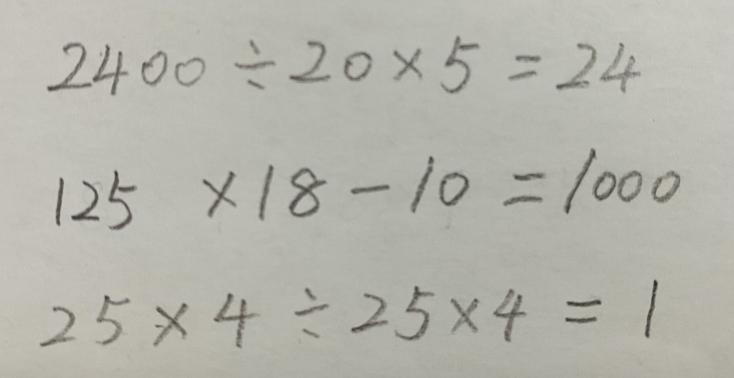 2400÷20×5=24
125 ×18-10=1000
25×4÷25×4=1